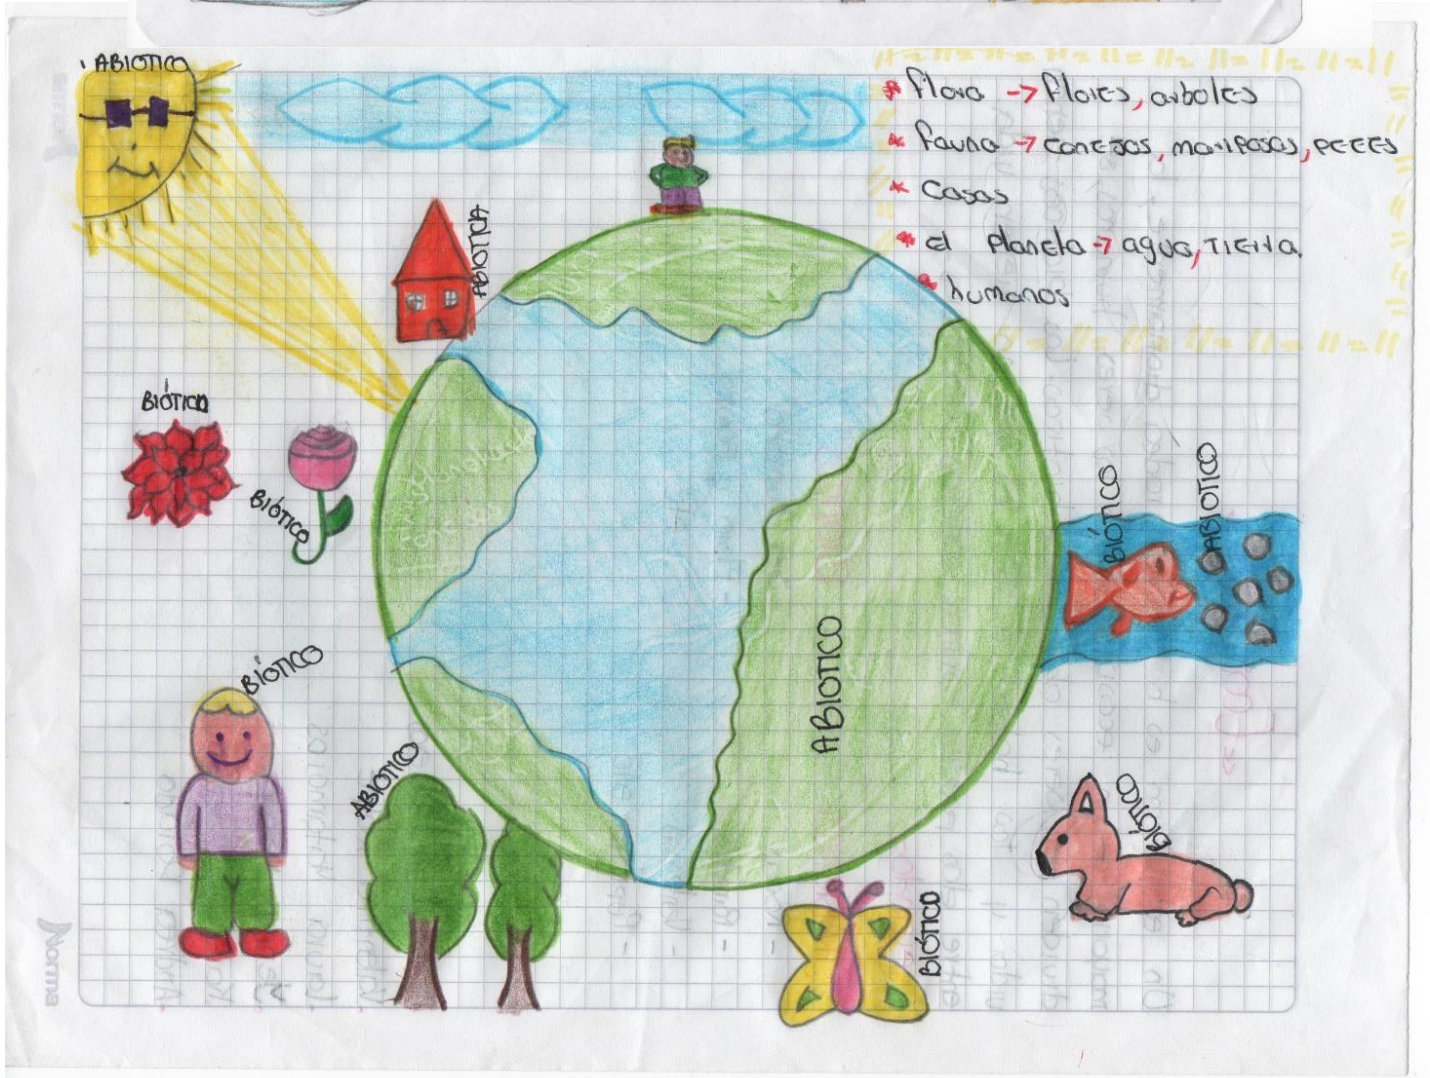 ABIOTICO
* flora → flores, arboles
* fauna → conejos, mariposas, peces
* casas
* el planeta → agua, tierra.
* humanos
ABIOTICA
BIÓTICO
BIÓTICO
BIÓTICO
ABIOTICO
BIÓTICO
ABIOTICO
ABIOTICO
BIÓTICO
BIÓTICO
Norma